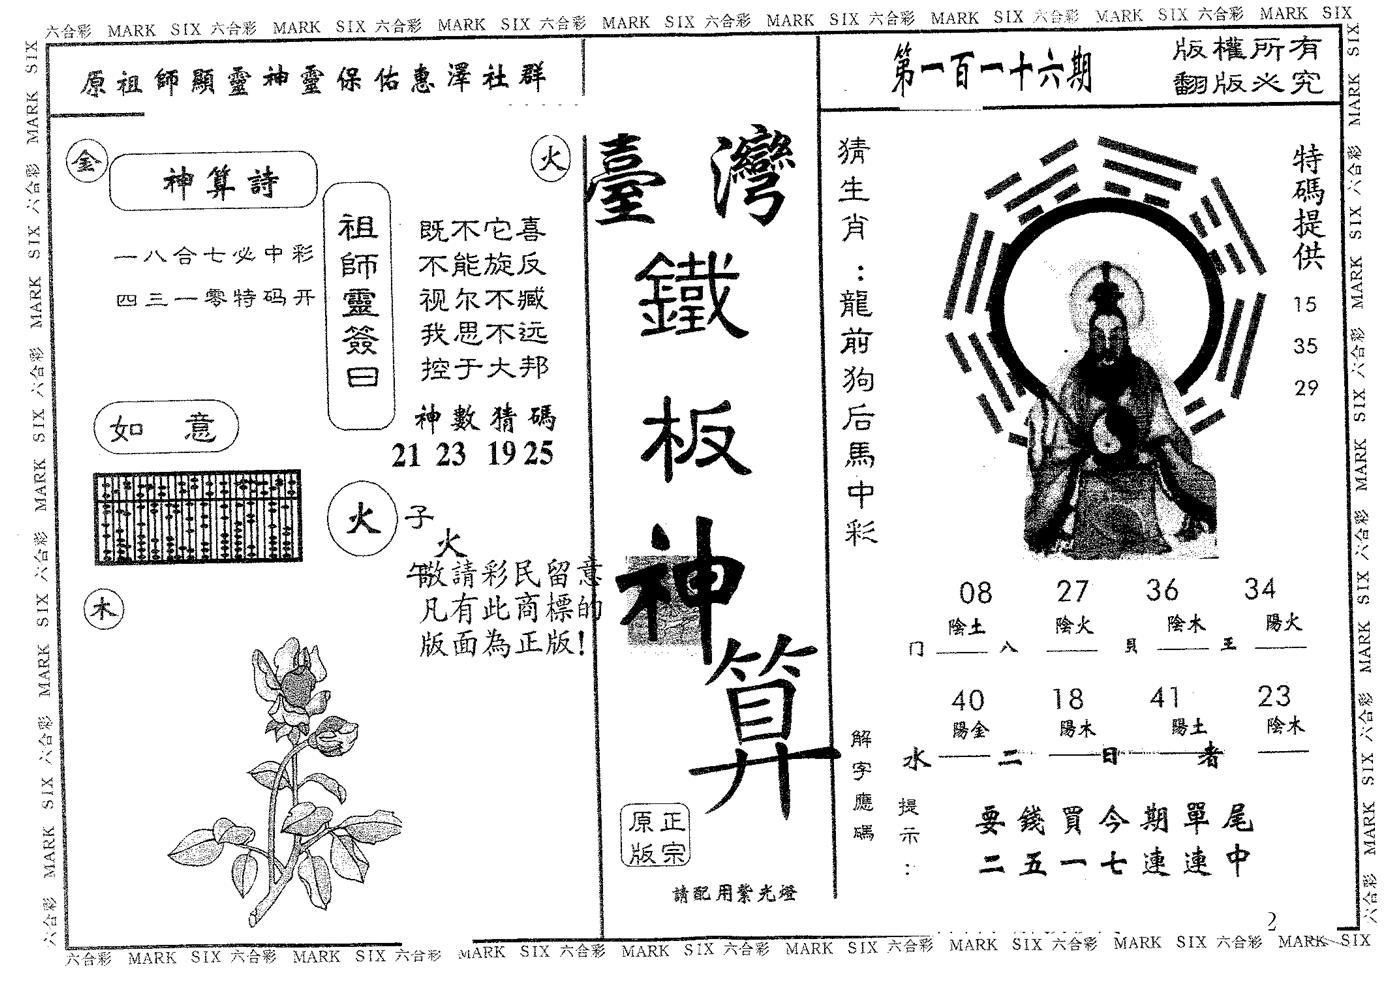 六合彩 MARK SIX 六合彩 MARK SIX 六合彩 MARK SIX 六合彩 MARK SIX 六合彩 MARK SIX 六合彩 MARK SIX 六合彩 MARK SIX 六合彩 MARK SIX
原祖師顯靈神靈保佑惠澤社群
金
神算詩
火
一八合七必中彩
四三一零特码开
祖師靈簽曰
既不它喜
不能旋反
视尔不臧
我思不远
控于大邦
神數猜碼
21 23 19 25
如意
火
子
火
午
敬請彩民留意
凡有此商標的
版面為正版!
木
臺灣
鐵
板
神
算
原正
版宗
請配用紫光燈
第一百一十六期
版權所有
翻版必究
猜生肖：龍前狗后馬中彩
特碼提供
15
35
29
08 27 36 34
陰土 陰火 陰木 陽火
门 八 貝 王
40 18 41 23
陽金 陽木 陽土 陰木
水 二 日 者
解字應碼
提示：
要錢買今期單尾
二五一七連連中
2
六合彩 MARK SIX 六合彩 MARK SIX 六合彩 MARK SIX 六合彩 MARK SIX 六合彩 MARK SIX 六合彩 MARK SIX 六合彩 MARK SIX 六合彩 MARK SIX